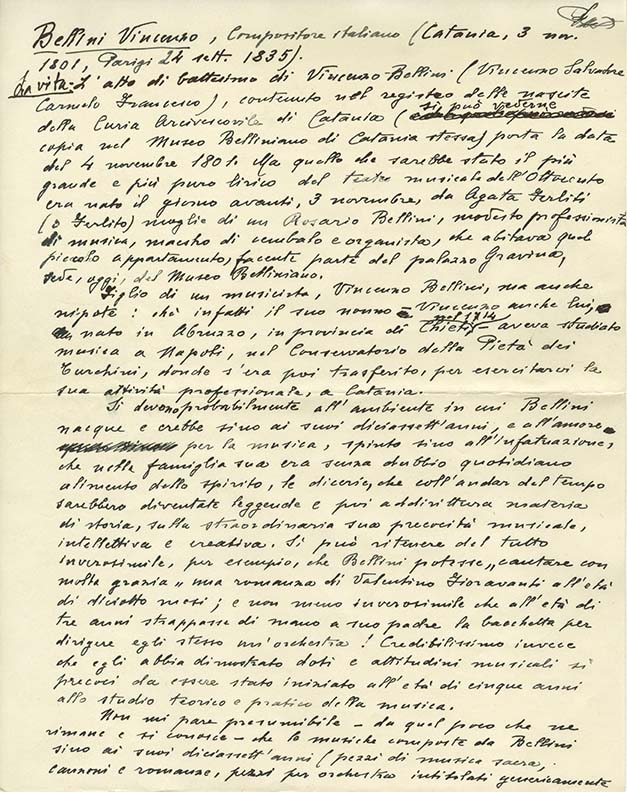 Bellini Vincenzo, Compositore italiano (Catania, 3 nov.
1801, Parigi 24 sett. 1835).
La vita - L'atto di battesimo di Vincenzo Bellini (Vincenzo Salvatore
Carmelo Francesco), contenuto nel registro delle nascite
della Curia Arcivescovile di Catania (si può vederne
copia nel Museo Belliniano di Catania stessa) porta la data
del 4 novembre 1801. Ma quello che sarebbe stato il più
grande e più puro lirico del teatro musicale dell'Ottocento
era nato il giorno avanti, 3 novembre, da Agata Ferliti
(o Ferlito) moglie di un Rosario Bellini, modesto professionista
di musica, maestro di cembalo e organista, che abitava quel
piccolo appartamento, facente parte del palazzo Gravina,
sede, oggi, del Museo Belliniano.
Figlio di un musicista, Vincenzo Bellini, ma anche
nipote: chè infatti il suo nonno - Vincenzo anche lui,
nato in Abruzzo, in provincia di Chieti, nel 1714 - aveva studiato
musica a Napoli, nel Conservatorio della Pietà dei
Turchini, donde s'era poi trasferito, per esercitarvi la
sua attività professionale, a Catania.
Si devono probabilmente all'ambiente in cui Bellini
nacque e crebbe sino ai suoi diciassett'anni, e all'amore
per la musica, spinto sino all'infatuazione,
che nella famiglia sua era senza dubbio quotidiano
alimento dello spirito, le dicerie, che coll'andar del tempo
sarebbero diventate leggende e poi addirittura materia
di storia, sulla straordinaria sua precocità musicale,
intellettiva e creativa. Si può ritenere del tutto
inverosimile, per esempio, che Bellini potesse „cantare con
molta grazia" una romanza di Valentino Fioravanti all'età
di diciotto mesi; e non meno inverosimile che all'età di
tre anni strappasse di mano a suo padre la bacchetta per
dirigere egli stesso un'orchestra! Credibilissimo invece
che egli abbia dimostrato doti e attitudini musicali sì
precoci da essere stato iniziato all'età di cinque anni
allo studio teorico e pratico della musica.
Non mi pare presumibile - da quel poco che ne
rimane e si conosce - che le musiche composte da Bellini
sino ai suoi diciassett'anni (pezzi di musica sacra,
canzoni e romanze, pezzi per orchestra intitolati genericamente